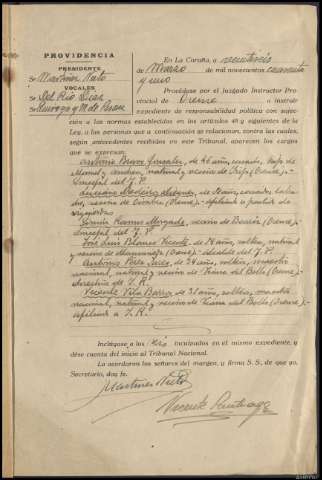 PROVIDENCIA
PRESIDENTE
Sr. Martínez Nieto
VOCALES
Sr. Del Río Díaz
Sr.
En La Coruña, a veintiseis
de Marzo de mil novecientos cuarenta
y uno
Procédase por el Juzgado Instructor Provincial de Orense a instruir
expediente de responsabilidad política con sujeción
a las normas establecidas en los artículos 46 y siguientes de la
Ley, a las personas que a continuación se relacionan, contra las cuales,
según antecedentes recibidos en este Tribunal, aparecen los cargos
que se expresan:
Antonio Bravo González, de 46 años, casado, hijo de
Manuel y Andrea, natural y vecino de (Orense).-
Concejal del F. P.
de años, casado,
vecino de (Orense).- afiliado a partido de
izquierdas
Ramos Morgade, vecino de (Orense).-
Concejal del F. P.
José Luis Blanco Vicente, de 24 años, soltero, natural
y vecino de (Orense).- alcalde del F. P.
Antonio Pérez de 24 años, soltero, maestro
nacional, natural y vecino de Viana del Bollo (Orense).-
directivo de I. R.
Vicente Vila Barros, de 31 años, soltero, maestro
nacional, natural y vecino de Viana del Bollo (Orense).-
afiliado a I. R.
Inclúyase a los inculpados en el mismo expediente, y
dése cuenta del inicio al Tribunal Nacional.
Lo acordaron los señores del margen, y firma S. S. de que yo,
Secretario, doy fe.
Martínez Nieto
Vicente Santiago